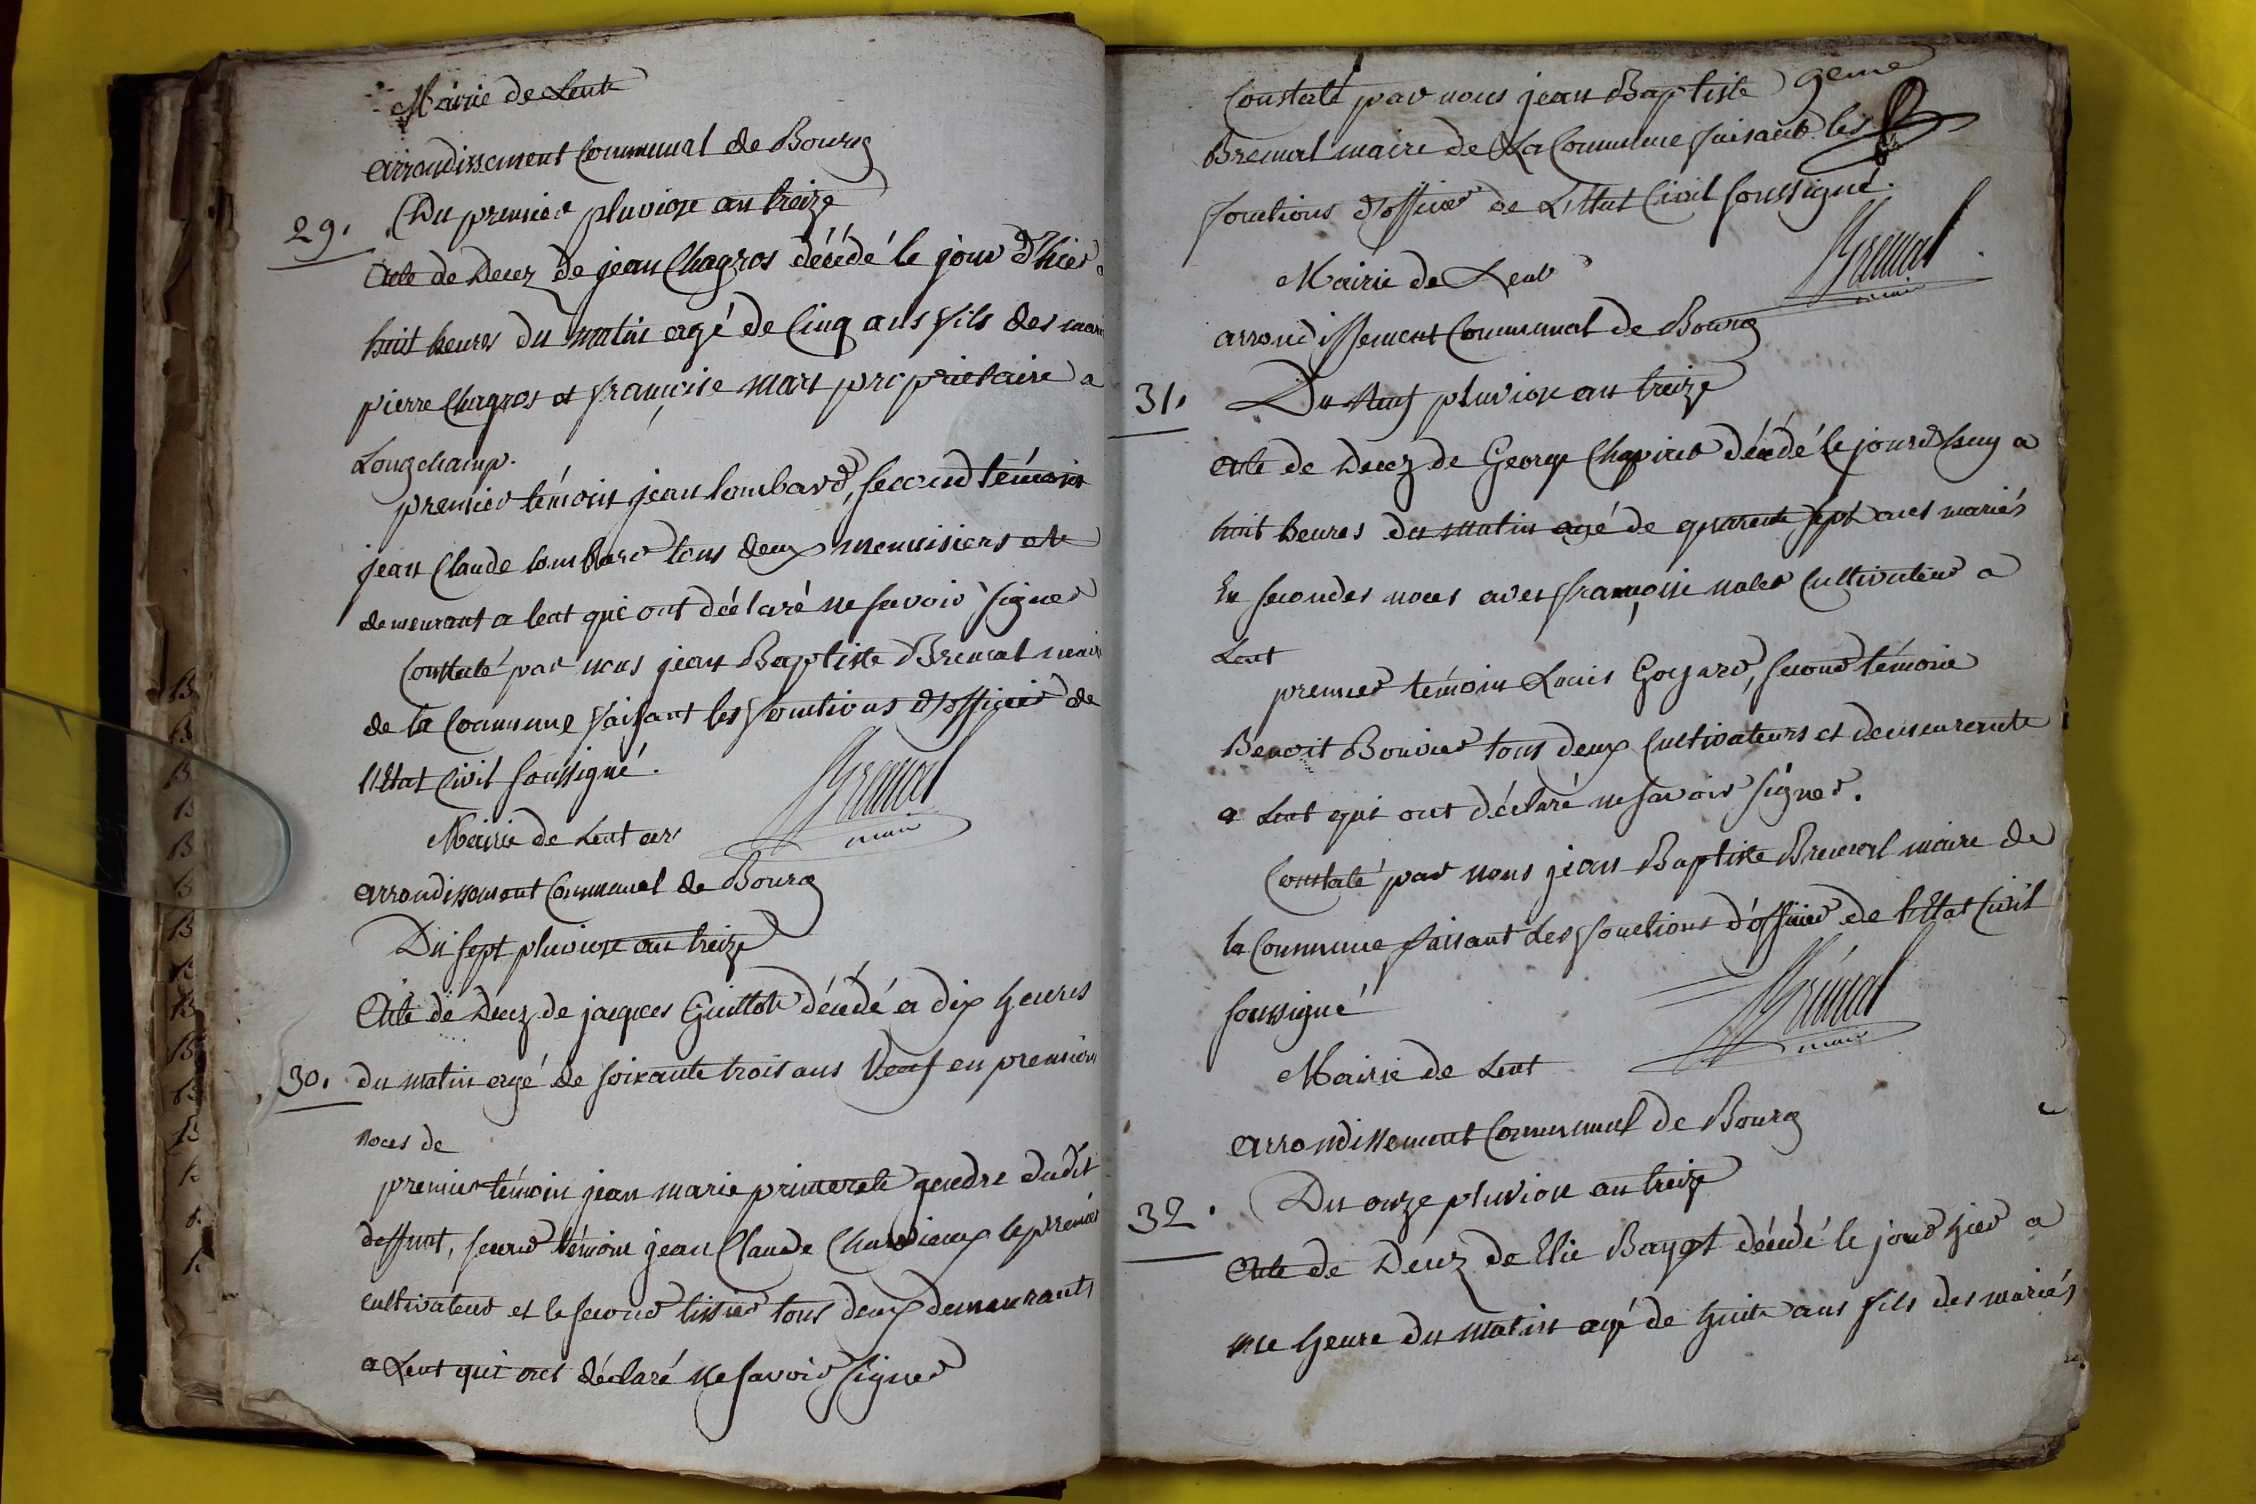 Mairie de Lent
arrondissement Communal de Bourg
29. Du premier pluviose an treize
Acte de Decez de jean Chagros décédé le jour d'hier a
huit heures du matin agé de Cinq ans fils des mari
pierre Chagros et françoise mort propriétaire a
Longchamp.
premier témoin jean lombard, second témoin
jean Claude lombard tous deux menuisiers et
demeurant a lent qui ont déclaré ne savoir signer
Constaté par nous jean Baptiste Bremal maire
de la Commune faisant les fonctions d'officier de
l'Etat Civil soussigné.
Bremal
maire
Mairie de Lent arr
arrondissement Communal de Bourg
Du sept pluviose an treize
Acte de Decez de jacques Guillot décédé a dix heures
30. du matin agé de soixante trois ans Veuf en premieres
noces de
premier témoin jean marie gendre dudit
deffunt, second témoin jean Claude le premier
cultivateur et le second tissier tous deux demeurants
a Lent qui ont déclaré ne savoir signer
9eme
Constaté par nous jean Baptiste
Bremal maire de La Commune faisant les
fonctions d'officier de L'Etat Civil soussigné.
Bremal
maire
Mairie de Lent
arrondissement Communal de Bourg
31. Du Neuf pluviose an treize
Acte de Decez de George décédé le jourd'huy a
huit heures du matin agé de quarante sept ans mariés
En secondes noces avec françoise cultivateur a
Lent
premier témoin Louis Goyard, second témoin
Benoit Bouvier tous deux Cultivateurs et demeurents
a Lent qui ont déclaré ne savoir signer.
Constaté par nous jean Baptiste Bremal maire de
la Commune faisant Les fonctions d'officier de l'Etat Civil
soussigné
Bremal
maire
Mairie de Lent
arrondissement Communal de Bourg
32. Du onze pluviose an treize
Acte de Decez de Elie Bayot décédé le jour hier a
une heure du matin agé de huit ans fils des mariés